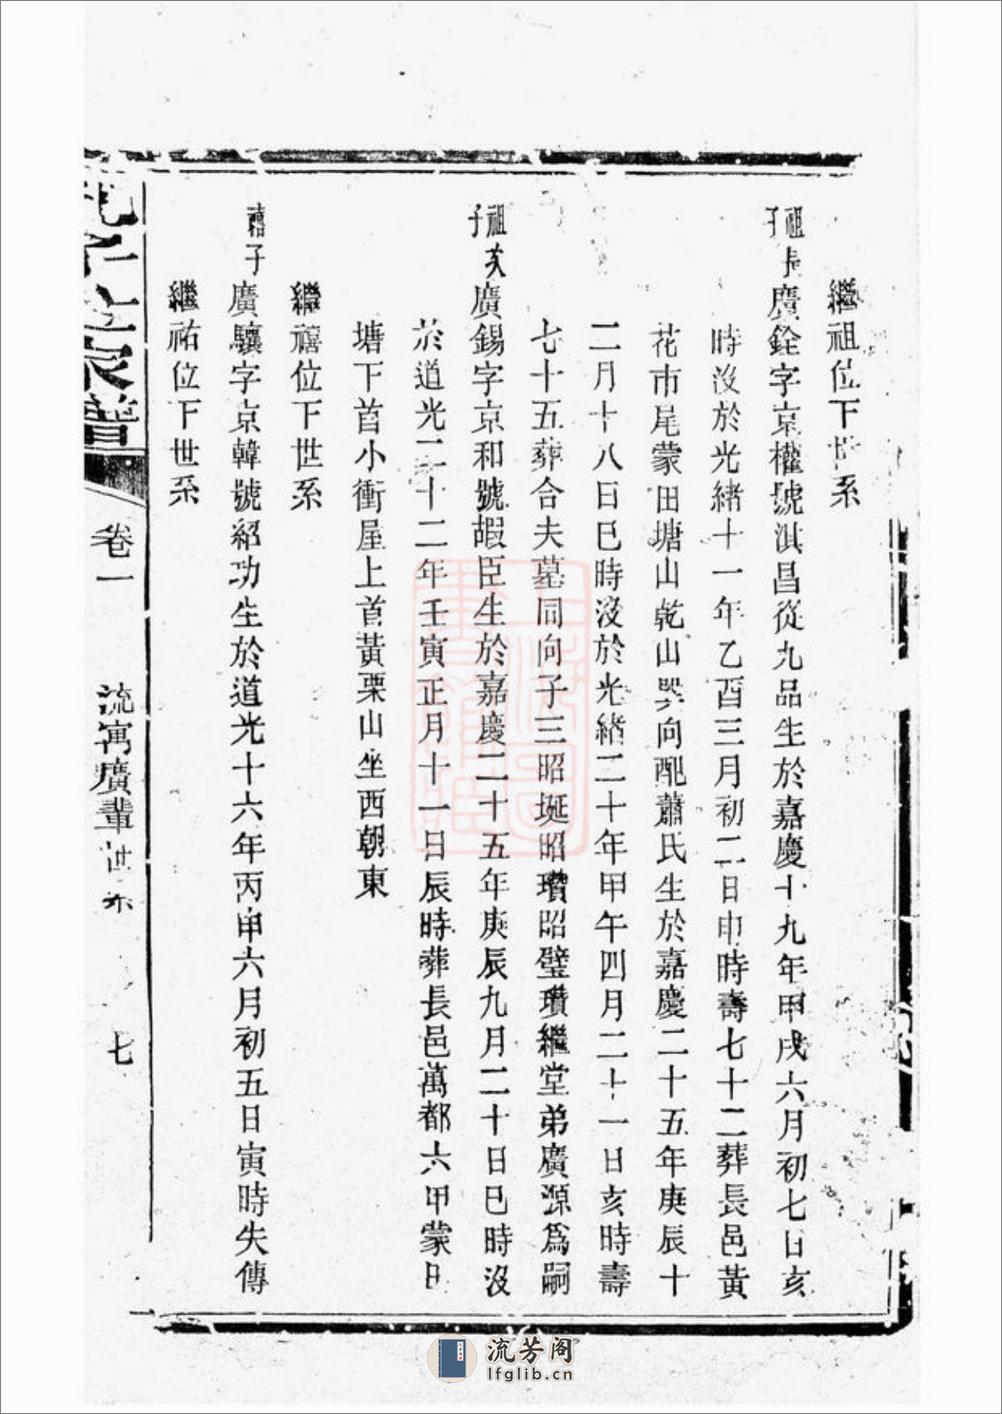 繼祖位下世系
祖長子廣銓字京權號淇昌從九品生於嘉慶十九年甲戌六月初七日亥
時沒於光緒十一年乙酉三月初二日申時壽七十二葬長邑黃
花市尾蒙田塘山乾山巽向配蕭氏生於嘉慶二十五年庚辰十
二月十八日巳時沒於光緒二十年甲午四月二十一日亥時壽
七十五葬合夫墓同向子三昭珽昭瓚昭璧瓚繼堂弟廣源為嗣
祖次子廣錫字京和號嘏臣生於嘉慶二十五年庚辰九月二十日巳時沒
於道光二十二年壬寅正月十一日辰時葬長邑萬都六甲蒙田
塘下首小衝屋上首黃栗山坐西朝東
繼禧位下世系
禧子廣驤字京韓號紹功生於道光十六年丙申六月初五日寅時失傳
繼祐位下世系
孔子世家譜
卷一
流寓廣輩世系
七
流芳阁
lfglib.cn